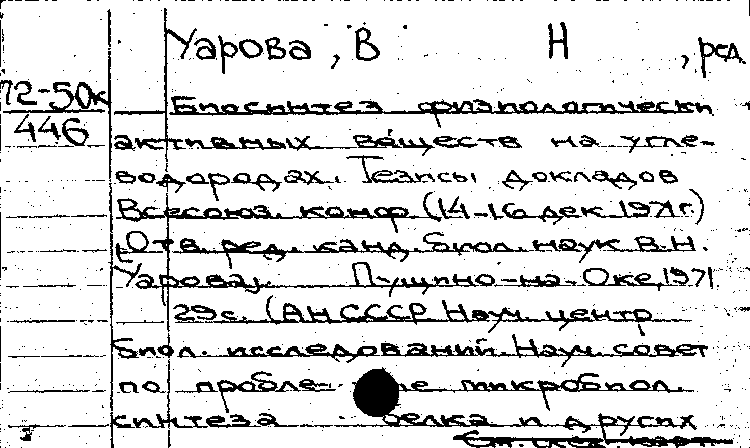 Уарова, В Н , ред
72-50к
446
Биосинтез физиологически
активных веществ на угле-
водородах. Тезисы докладов
Всесоюз. конф (14-16 дек 1971г.)
[Отв. ред. канд. биол. наук В.Н.
Уарова]. Пущино-на-Оке, 1971
29с. (АН СССР Науч. центр
биол. исследований. Науч. совет
по пробле- ме микробиол.
синтеза белка и других